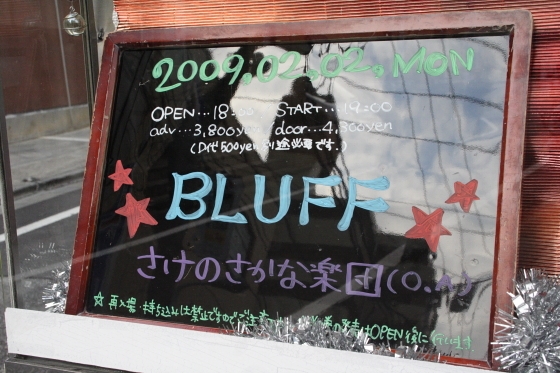 2009.02.02.MON
OPEN…18:00 START…19:00
adv…3,800yen door…4,300yen
(D代500yen別途必要です.)
BLUFF
さけのさかな楽団(O.A)
☆再入場・持ち込みは禁止ですのでご OPEN後に行います